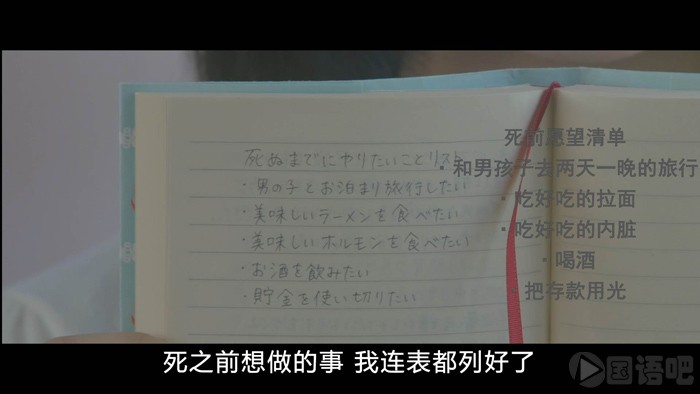 死ぬまでにやりたいことリスト
・男の子とお泊まり旅行したい
・美味しいラーメンを食べたい
・美味しいホルモンを食べたい
・お酒を飲みたい
・貯金を使い切りたい
死前愿望清单
・和男孩子去两天一晚的旅行
・吃好吃的拉面
・吃好吃的内脏
・喝酒
・把存款用光
死之前想做的事 我连表都列好了
国语吧